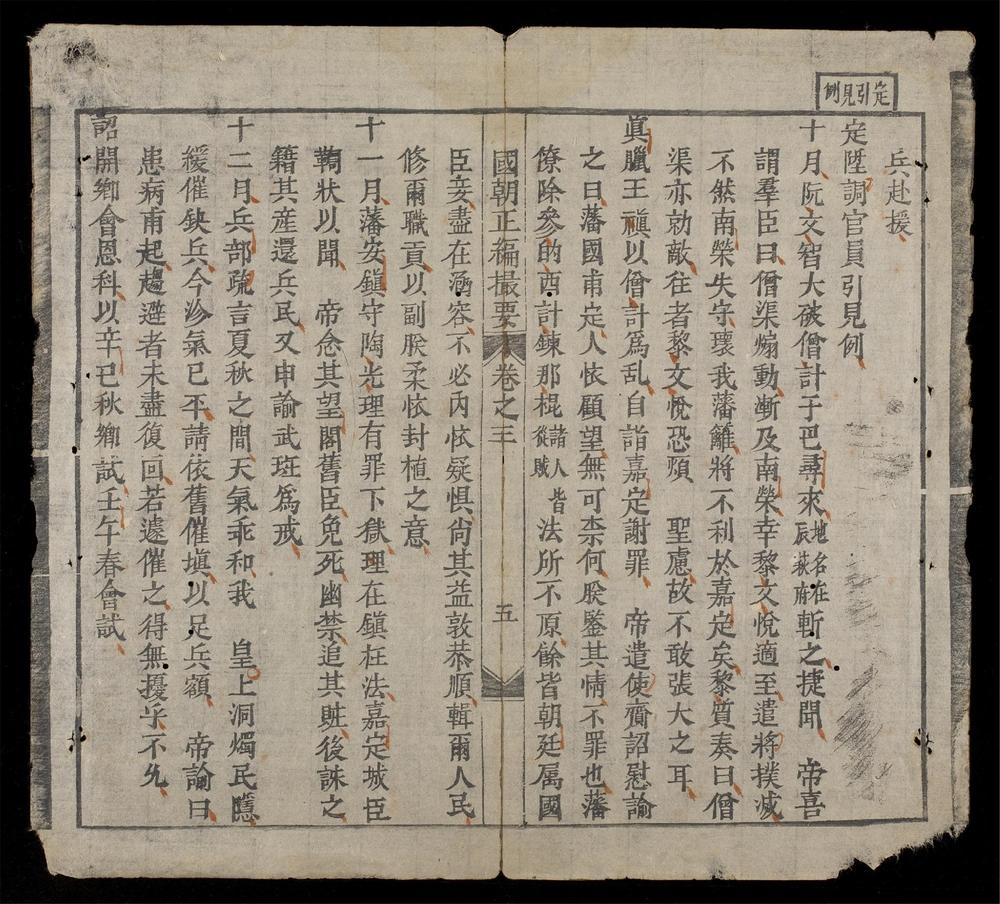 定引見例
兵赴援
定陞調官員引見例
十月阮文智大破僧計于巴尋來地名在辰萩府斬之捷聞　帝喜
謂羣臣曰僧渠煽動漸及南榮幸黎文悅適至遣將撲滅
不然南榮失守壞我藩籬將不利於嘉定矣黎質奏曰僧
渠亦勍敵往者黎文悅恐煩　聖慮故不敢張大之耳
眞臘王禛以僧計爲乱自詣嘉定謝罪　帝遣使齎詔慰諭
之曰藩國甫定人依顧望無可柰何朕鑒其情不罪也藩
僚除參的西計鍊那棍諸人從賊皆法所不原餘皆朝廷属國
國朝正編撮要　卷之三　五
臣妾盡在涵容不必內怀疑惧尙其益敦恭順輯爾人民
修爾職貢以副朕柔怀封植之意
十一月藩安鎮守陶光理有罪下獄理在鎮枉法嘉定城臣
鞫狀以聞　帝念其望閣舊臣免死幽禁追其賍後誅之
籍其産還兵民又申諭武班爲戒
十二月兵部疏言夏秋之間天氣乖和我　皇上洞燭民隱
緩催缺兵今沴氣已平請依舊催塡以足兵額　帝諭曰
患病甫起趨避者未盡復回若遽催之得無擾乎不允
詔開鄉會恩科以辛巳秋鄉試壬午春會試